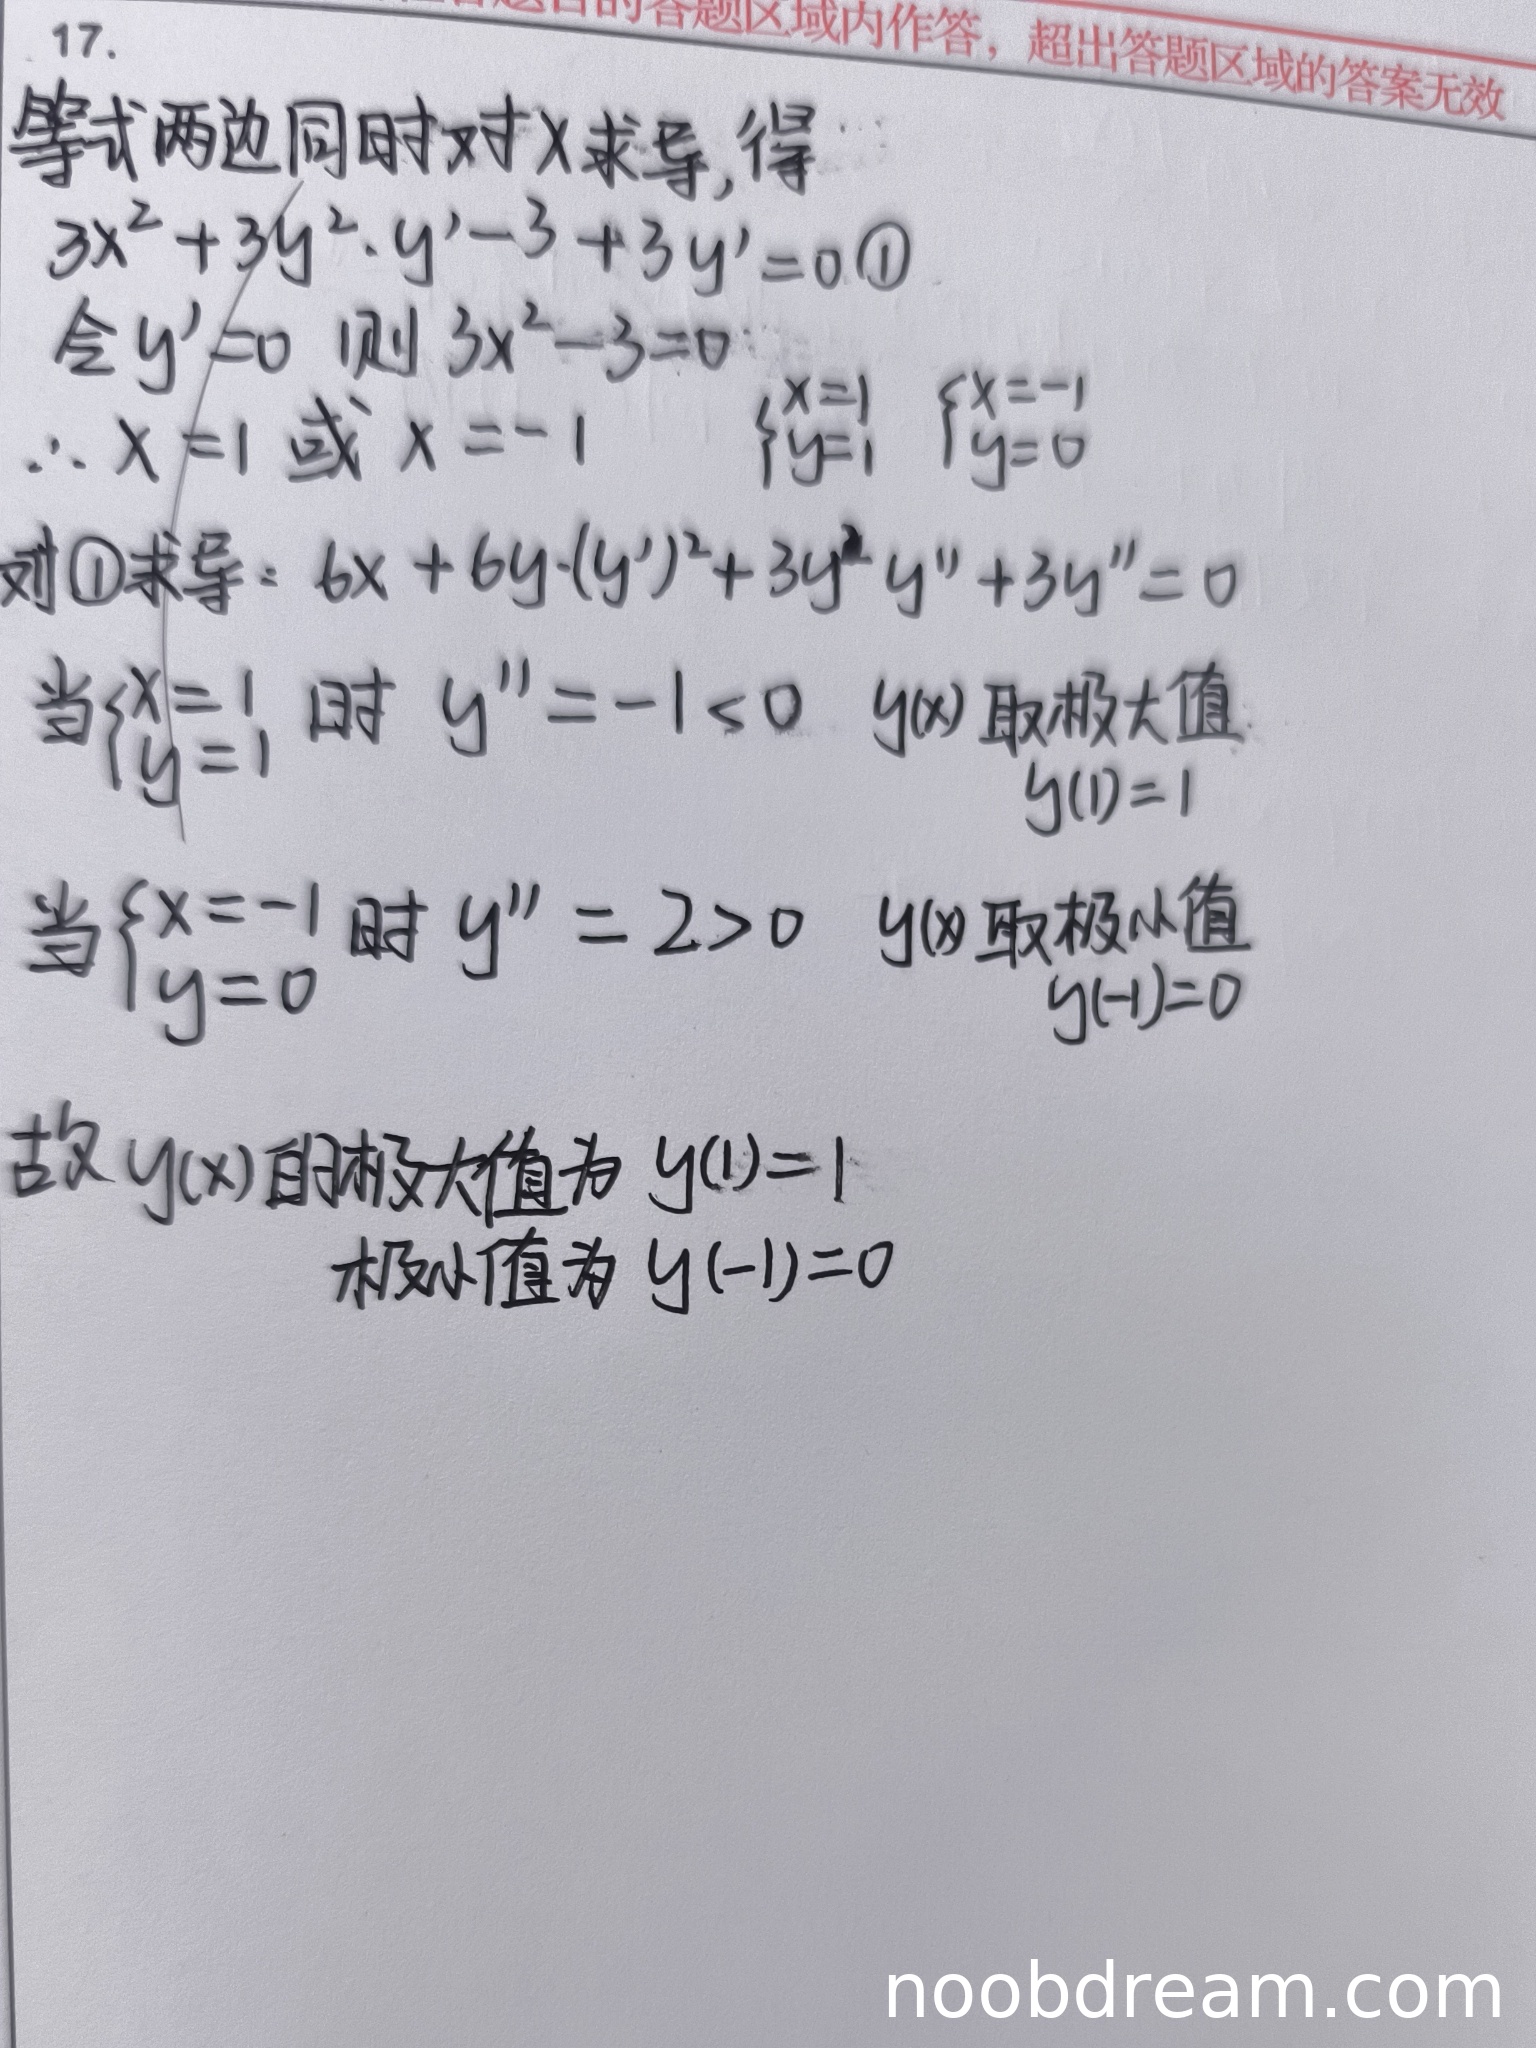 的答题区域内作答，超出答题区域的答案无效
17.
等式两边同时对x求导,得
3x²+3y²·y'-3+3y'=0①
令y'=0 则 3x²-3=0
∴x=1 或 x=-1 {x=1 y=1 {x=-1 y=0
对①求导: 6x+6y·(y')²+3y²y''+3y''=0
当{x=1 y=1 时 y''=-1<0 y(x)取极大值
y(1)=1
当{x=-1 y=0 时 y''=2>0 y(x)取极小值
y(-1)=0
故y(x)的极大值为 y(1)=1
极小值为 y(-1)=0
noobdream.com